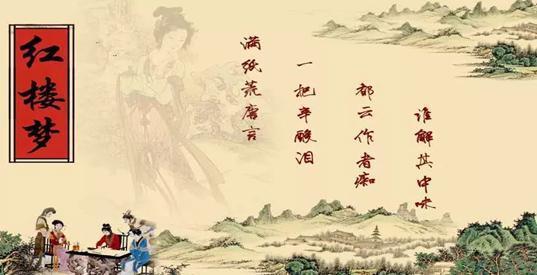 红楼梦
满纸荒唐言
一把辛酸泪
都云作者痴
谁解其中味